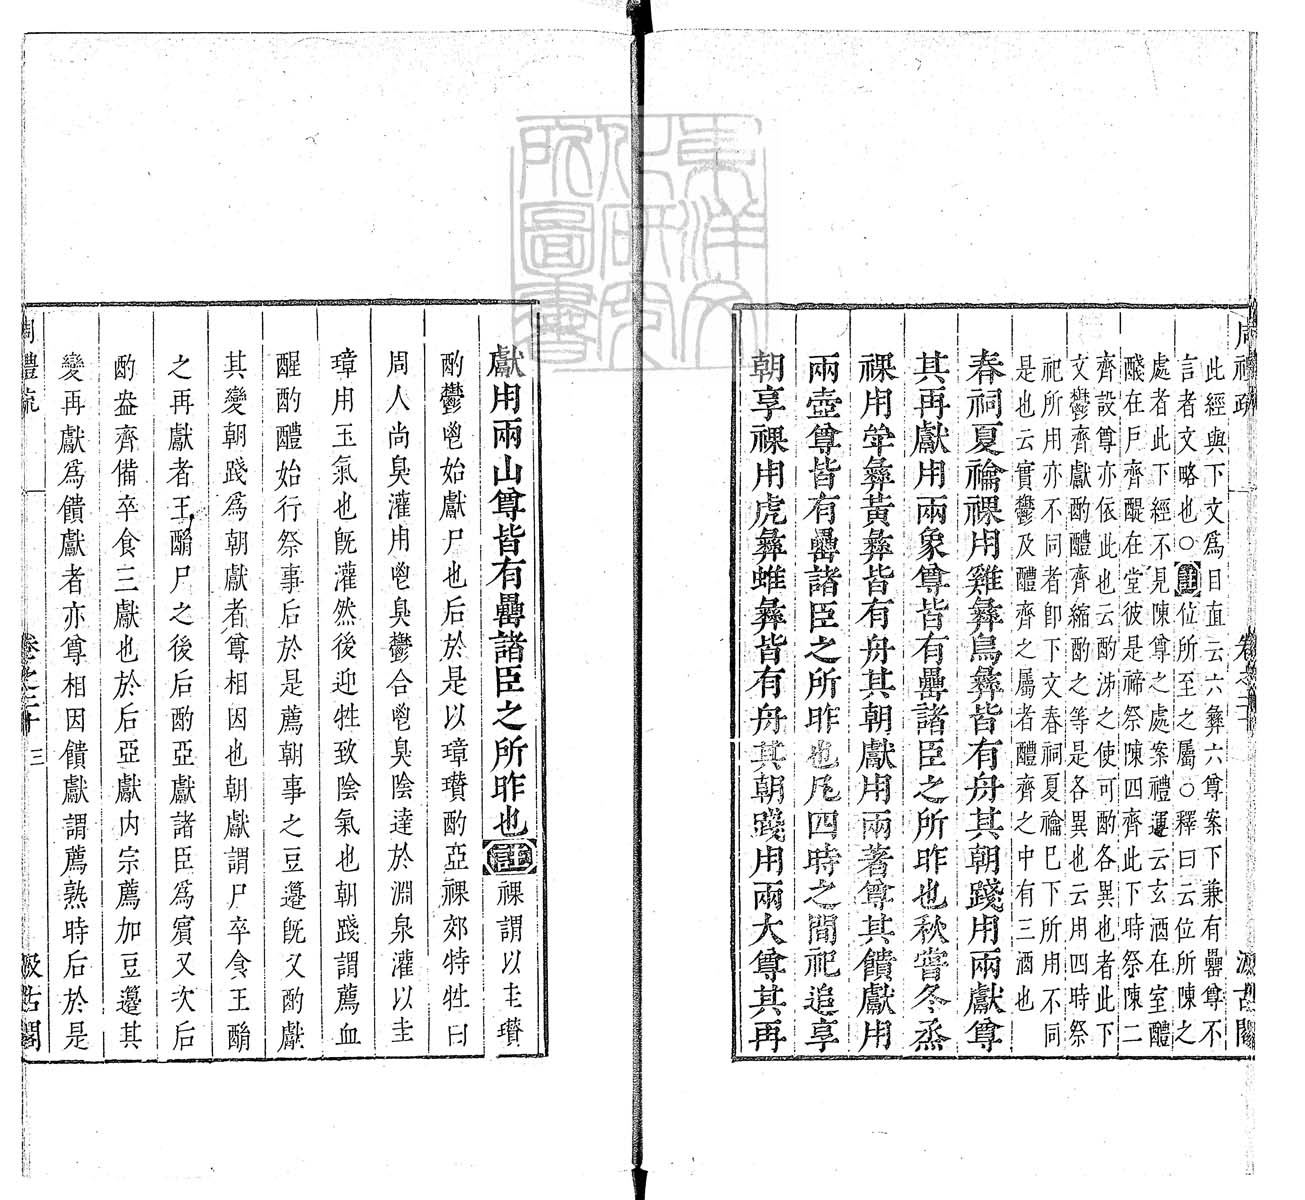 周禮疏
卷之二十
汲古閣
此經與下文爲目直云六彝六尊案下兼有罍尊不
言者文略也○註位所至之屬○釋曰云位所陳之
處者此下經不見陳尊之處案禮運云玄酒在室醴
醆在戸齊醍在堂彼是禘祭陳四齊此下時祭陳二
齊設尊亦依此也云酌泲之使可酌各異也者此下
文鬱齊獻酌醴齊縮酌之等是各異也云用四時祭
祀所用亦不同者卽下文春祠夏禴巳下所用不同
是也云實鬱及醴齊之屬者醴齊之中有三酒也
春祠夏禴祼用雞彝鳥彝皆有舟其朝踐用兩獻尊
其再獻用兩象尊皆有罍諸臣之所昨也秋嘗冬烝
祼用斝彝黃彝皆有舟其朝獻用兩著尊其饋獻用
兩壺尊皆有罍諸臣之所昨也凡四時之間祀追享
朝享祼用虎彝蜼彝皆有舟其朝踐用兩大尊其再
獻用兩山尊皆有罍諸臣之所昨也註祼謂以圭瓚
酌鬱鬯始獻尸也后於是以璋瓚酌亞祼郊特牲曰
周人尚臭灌用鬯臭鬱合鬯臭陰達於淵泉灌以圭
璋用玉氣也旣灌然後迎牲致陰氣也朝踐謂薦血
腥酌醴始行祭事后於是薦朝事之豆籩旣又酌獻
其變朝踐爲朝獻者尊相因也朝獻謂尸卒食王酳
之再獻者王酳尸之後后酌亞獻諸臣爲賓又次后
酌盎齊備卒食三獻也於后亞獻内宗薦加豆籩其
變再獻爲饋獻者亦尊相因饋獻謂薦熟時后於是
周禮疏
卷之二十
三
汲古閣
東洋文化研究所圖書